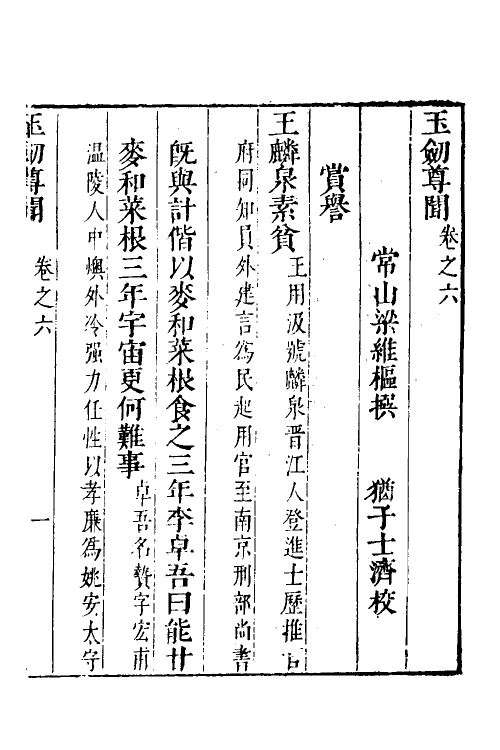 玉劒尊聞卷之六
常山梁維樞撰 猶子士濟校
賞譽
王麟泉素貧王用汲號麟泉晋江人登進士歷推官
府同知員外建言爲民起用官至南京刑部尚書
旣與計偕以麥和菜根食之三年李卓吾曰能甘
麥和菜根三年宇宙更何難事卓吾名贄字宏甫
温陵人中燠外冷强力任性以孝廉爲姚安太守
玉劒尊聞 卷之六 一